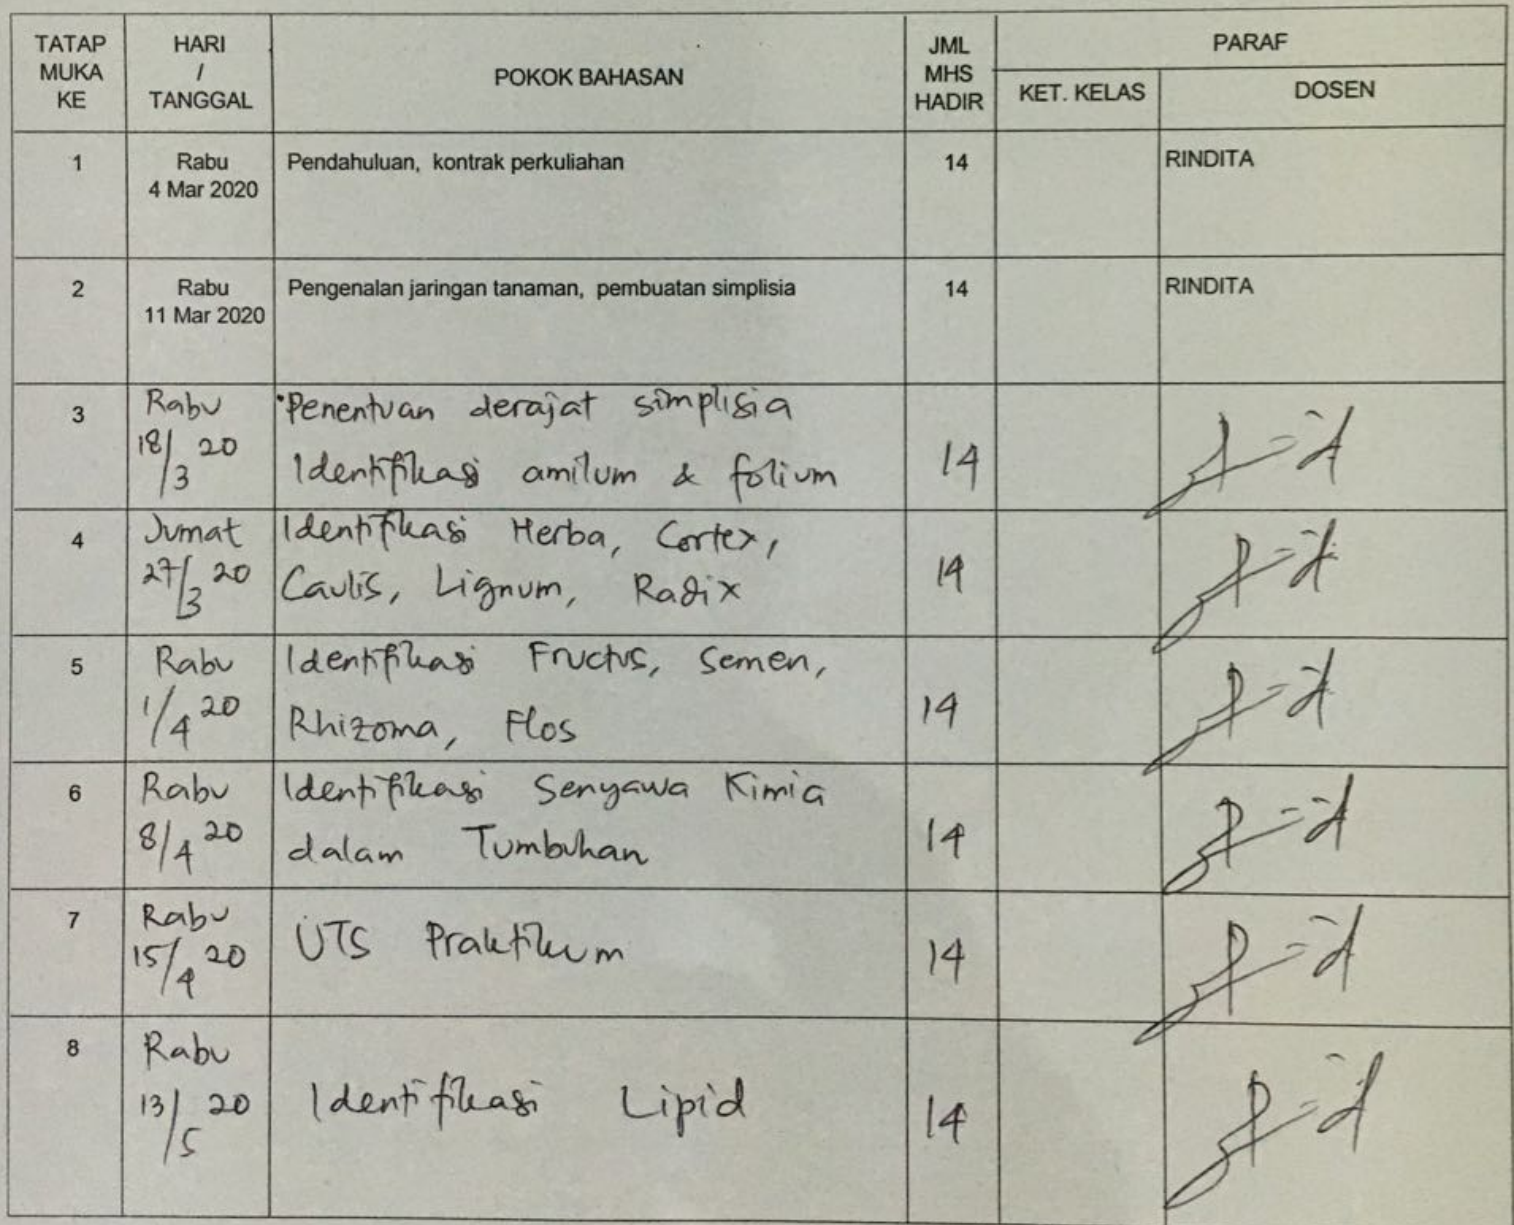 TATAP MUKA KE
HARI / TANGGAL
POKOK BAHASAN
JML MHS HADIR
PARAF
KET. KELAS
DOSEN
1
Rabu
4 Mar 2020
Pendahuluan, kontrak perkuliahan
14
RINDITA
2
Rabu
11 Mar 2020
Pengenalan jaringan tanaman, pembuatan simplisia
14
RINDITA
3
Rabu
18/3 20
Penentuan derajat simplisia
Identifikasi amilum & folium
14
4
Jumat
27/3 20
Identifikasi Herba, Cortex,
Caulis, Lignum, Radix
14
5
Rabu
1/4 20
Identifikasi Fructus, Semen,
Rhizoma, Flos
14
6
Rabu
8/4 20
Identifikasi Senyawa Kimia
dalam Tumbuhan
14
7
Rabu
15/4 20
UTS Praktikum
14
8
Rabu
13/5 20
Identifikasi Lipid
14